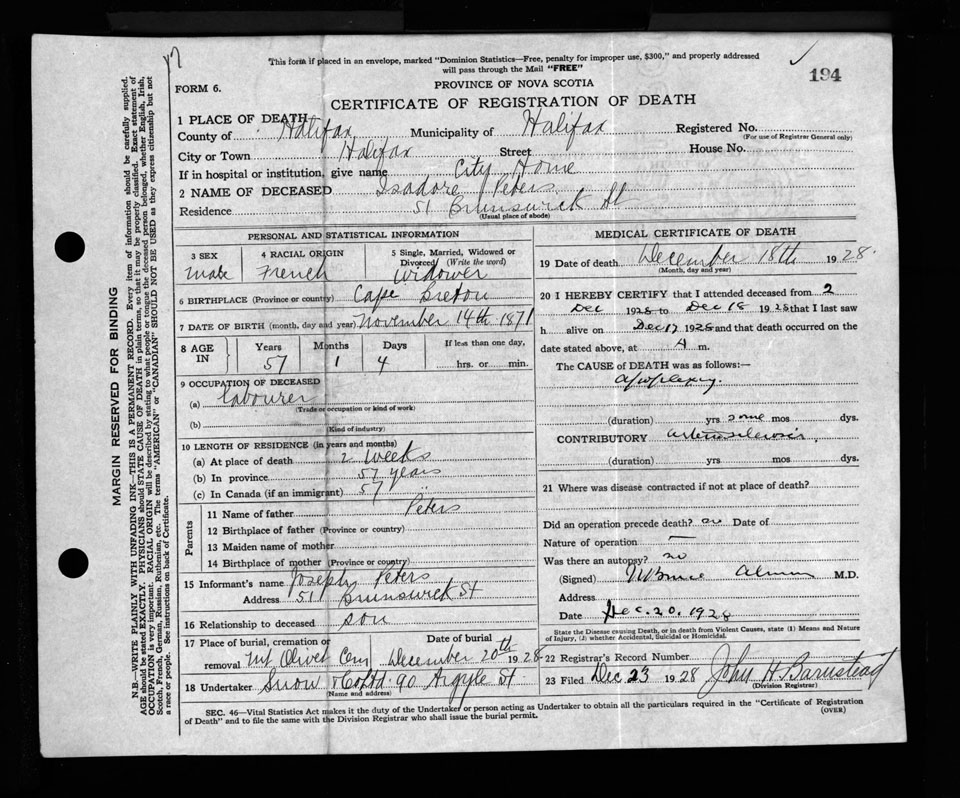 This form if placed in an envelope, marked "Dominion Statistics—Free, penalty for improper use, $300," and properly addressed
will pass through the Mail "FREE"
194
FORM 6.
PROVINCE OF NOVA SCOTIA
CERTIFICATE OF REGISTRATION OF DEATH
1 PLACE OF DEATH
County of Halifax Municipality of Halifax Registered No.
(For use of Registrar General only)
City or Town Halifax Street House No.
If in hospital or institution, give name City Home
2 NAME OF DECEASED Isadore Peters
Residence 51 Brunswick St
(Usual place of abode)
PERSONAL AND STATISTICAL INFORMATION
3 SEX 4 RACIAL ORIGIN 5 Single, Married, Widowed or
Divorced (Write the word)
male French Widower
6 BIRTHPLACE (Province or country) Cape Breton
7 DATE OF BIRTH (month, day and year) November 14th 1871
8 AGE IN Years Months Days If less than one day,
57 1 4 hrs. or min.
9 OCCUPATION OF DECEASED
(a) labourer
(Trade or occupation or kind of work)
(b)
(Kind of industry)
10 LENGTH OF RESIDENCE (in years and months)
(a) At place of death 2 weeks
(b) In province 57 years
(c) In Canada (if an immigrant) 57 "
Parents
11 Name of father Peters
12 Birthplace of father (Province or country)
13 Maiden name of mother
14 Birthplace of mother (Province or country)
15 Informant's name Joseph Peters
Address 51 Brunswick St
16 Relationship to deceased son
17 Place of burial, cremation or removal Mt Olivet Cem
Date of burial December 20th 1928
18 Undertaker Snow & Co Ltd 90 Argyle St
(Name and address)
MEDICAL CERTIFICATE OF DEATH
19 Date of death December 18th 1928.
(Month, day and year)
20 I HEREBY CERTIFY that I attended deceased from 2
Dec 1928 to Dec 18 1928 that I last saw
h alive on Dec 17 1928 and that death occurred on
date stated above, at A m.
The CAUSE of DEATH was as follows:—
apoplexy.
(duration) yrs mos dys.
CONTRIBUTORY arteriosclerosis
(duration) yrs mos dys.
21 Where was disease contracted if not at place of death?
Did an operation precede death? no Date of
Nature of operation —
Was there an autopsy? no
(Signed) M.D.
Address
Date Dec. 20. 1928
State the Disease causing Death, or in death from Violent Causes, state (1) Means and Nature
of Injury, (2) whether Accidental, Suicidal or Homicidal.
22 Registrar's Record Number
23 Filed Dec 23 1928 John H. Barnstead
(Division Registrar)
SEC. 46—Vital Statistics Act makes it the duty of the Undertaker or person acting as Undertaker to obtain all the particulars required in the "Certificate of Registration
of Death" and to file the same with the Division Registrar who shall issue the burial permit. (OVER)
MARGIN RESERVED FOR BINDING
N.B.—WRITE PLAINLY WITH UNFADING INK—THIS IS A PERMANENT RECORD. Every item of information should be carefully supplied.
AGE should be stated EXACTLY. PHYSICIANS should STATE CAUSE OF DEATH in plain terms, so that it may be properly classified. Exact statement of
OCCUPATION is very important. RACIAL ORIGIN will be described by stating to what people or tongue the deceased person belonged, whether English, Irish,
Scotch, French, German, Russian, Ruthenian, etc. The terms "AMERICAN" or "CANADIAN" SHOULD NOT BE USED as they express citizenship but not
a race or people. See instructions on back of Certificate.